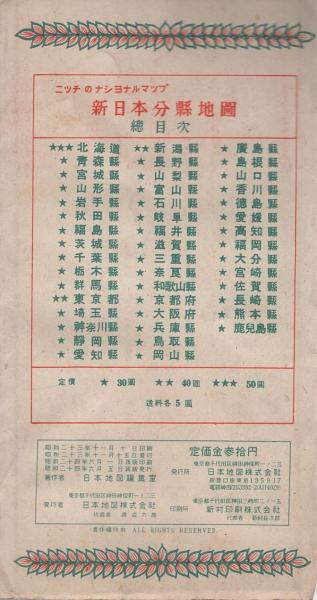 ニツチのナシヨナルマツプ
新日本分縣地圖
總目次
★★★北海道
★青森縣
★宮城縣
★山形縣
★岩手縣
★秋田縣
★福島縣
★茨城縣
★千葉縣
★栃木縣
★群馬縣
★★東京都
★埼玉縣
★神奈川縣
★靜岡縣
★愛知縣
★★新潟縣
★長野縣
★山梨縣
★富山縣
★石川縣
★岐阜縣
★福井縣
★滋賀縣
★三重縣
★奈良縣
★和歌山縣
★京都府
★大阪府
★兵庫縣
★鳥取縣
★岡山縣
★廣島縣
★島根縣
★山口縣
★香川縣
★德島縣
★愛媛縣
★高知縣
★福岡縣
★大分縣
★宮崎縣
★佐賀縣
★長崎縣
★熊本縣
★鹿兒島縣
定價 ★ 30圓 ★★ 40圓 ★★★ 50圓
送料各5圓
昭和二十三年十一月十日印刷
昭和二十三年十一月十五日發行
昭和二十四年六月一日再版印刷
昭和二十四年六月五日再版發行
著作者 日本地図編集室
東京都千代田区神田神保町一ノ二三
發行者 日本地図株式会社
代表者
定価金参拾円
東京都千代田区神田神保町一ノ二三
発行所 日本地図株式会社
振替口座東京135917
印刷所 新村印刷株式会社
代表者 新村長次郎
ALL RIGHTS RESERVED